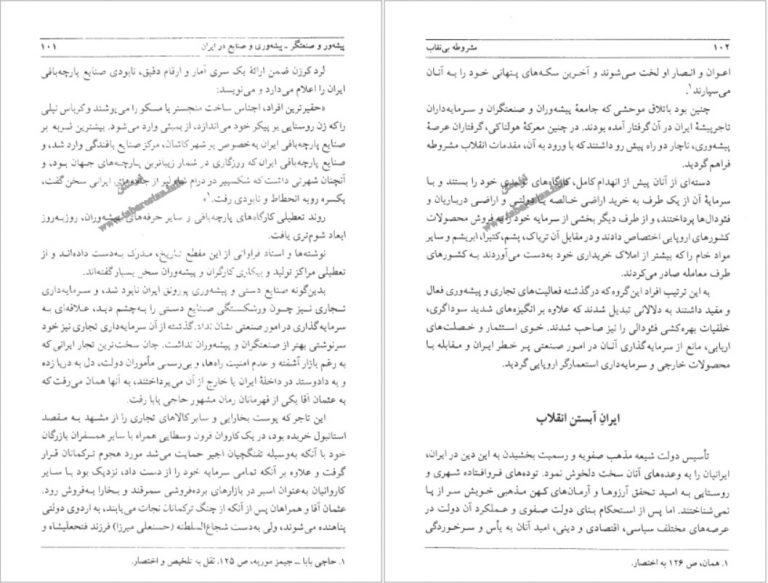 پیشه‌ور و صنعتگر ـ پیشه‌وری و صنایع در ایران ۱۰۱
لرد کرزن ضمن ارائهٔ یک سری آمار و ارقام دقیق، نابودی صنایع پارچه‌بافی
ایران را اعلام می‌دارد و می‌نویسد:
«حقیرترین افراد، اجناس ساخت منچستر یا مسکو را می‌پوشند و کرباس نیلی
را که زن روستایی بر پیکر خود می‌اندازد، از بمبئی وارد می‌شود. بیشترین ضربه بر
صنایع پارچه‌بافی ایران به‌خصوص بر شهر کاشان، مرکز صنایع بافندگی وارد شد، و
صنایع پارچه‌بافی ایران که روزگاری در شمار زیباترین پارچه‌های جهان بود، و
آنچنان شهرتی داشت که شکسپیر در درام شاه لیر از جامه‌های ایرانی سخن گفت،
یکسره روبه انحطاط و نابودی رفت.»
روند تعطیلی کارگاه‌های پارچه‌بافی و سایر حرفه‌های پیشه‌وران، روزبه‌روز
ابعاد شوم‌تری یافت.
نوشته‌ها و اسناد فراوانی از این مقطع تاریخ، مدرک به‌دست داده‌اند و از
تعطیلی مراکز تولید و بیکاری کارگران و پیشه‌وران سخن بسیار گفته‌اند.
بدین‌گونه صنایع دستی و پیشه‌وری پررونق ایران نابود شد، و سرمایه‌داری
تجاری نیز چون ورشکستگی صنایع دستی را به‌چشم دید، علاقه‌ای به
سرمایه‌گذاری در امور صنعتی نشان نداد. گذشته از آن سرمایه‌داری تجاری نیز خود
سرنوشتی بهتر از صنعتگران و پیشه‌وران نداشت. جان سخت‌ترین تجار ایرانی که
به رغم بازار آشفته و عدم امنیت راه‌ها، و بی‌رسمی مأموران دولت، دل به دریا زده
و به دادوستد در داخلهٔ ایران یا خارج از آن می‌پرداختند، به آنها همان می‌رفت که
به عثمان آقا یکی از قهرمانان رمان مشهور حاجی بابا رفت.
این تاجر که پوست بخارایی و سایر کالاهای تجاری را از مشهد به مقصد
استانبول خریده بود، در یک کاروان قرون وسطایی همراه با سایر همسفران بازرگان
خود با آنکه به‌وسیله تفنگچیان اجیر حمایت می‌شد مورد هجوم ترکمانان قرار
گرفت و علاوه بر آنکه تمامی سرمایه خود را از دست داد، نزدیک بود با سایر
کاروانیان به‌عنوان اسیر در بازارهای برده‌فروشی سمرقند و بخارا به‌فروش رود.
عثمان آقا و همراهان پس از آنکه از چنگ ترکمانان نجات می‌یابند، به اردوی دولتی
پناهنده می‌شوند، ولی به‌دست شجاع‌السلطنه (حسنعلی میرزا) فرزند فتحعلیشاه و
۱. حاجی بابا ـ جیمز موریه، ص ۱۲۵. نقل به تلخیص و اختصار.
۱۰۲ مشروطه بی‌نقاب
اعوان و انصار او لخت می‌شوند و آخرین سکه‌های پنهانی خود را به آنان
می‌سپارند.۱
چنین بود باتلاق موحشی که جامعهٔ پیشه‌وران و صنعتگران و سرمایه‌داران
تاجرپیشهٔ ایران در آن گرفتار آمده بودند. در چنین معرکهٔ هولناکی، گرفتاران عرصهٔ
پیشه‌وری، ناچار دو راه پیش رو داشتند که با ورود به آن، مقدمات انقلاب مشروطه
فراهم گردید.
دسته‌ای از آنان پیش از انهدام کامل، کارگاه‌های تولیدی خود را بستند و با
سرمایهٔ آن از یک طرف به خرید اراضی خالصه یا دولتی و اراضی درباریان و
فئودال‌ها پرداختند، و از طرف دیگر بخشی از سرمایه خود را به فروش محصولات
کشورهای اروپایی اختصاص دادند و در مقابل آن تریاک، پشم، کتیرا، ابریشم و سایر
مواد خام را که بیشتر از املاک خریداری خود به‌دست می‌آوردند به کشورهای
طرف معامله صادر می‌کردند.
به این ترتیب افراد این گروه که در گذشته فعالیت‌های تجاری و پیشه‌وری فعال
و مفید داشتند به دلالانی تبدیل شدند که علاوه بر انگیزه‌های شدید سوداگری،
خلقیات بهره‌کشی فئودالی را نیز صاحب شدند. خوی استثمار و خصلت‌های
اربابی، مانع از سرمایه‌گذاری آنان در امور صنعتی پر خطر ایران و مقابله با
محصولات خارجی و سرمایه‌داری استعمارگر اروپایی گردید.
ایران آبستن انقلاب
تأسیس دولت شیعه مذهب صفویه و رسمیت بخشیدن به این دین در ایران،
ایرانیان را به وعده‌های آنان سخت دلخوش نمود. توده‌های فروافتاده شهری و
روستایی به امید تحقق آرزوها و آرمان‌های کهن مذهبی خویش سر از پا
نمی‌شناختند. اما پس از استحکام بنای دولت صفوی و عملکرد آن دولت در
عرصه‌های مختلف سیاسی، اقتصادی و دینی، امید آنان به یأس و سرخوردگی
۱. همان، ص ۱۲۶ به اختصار.